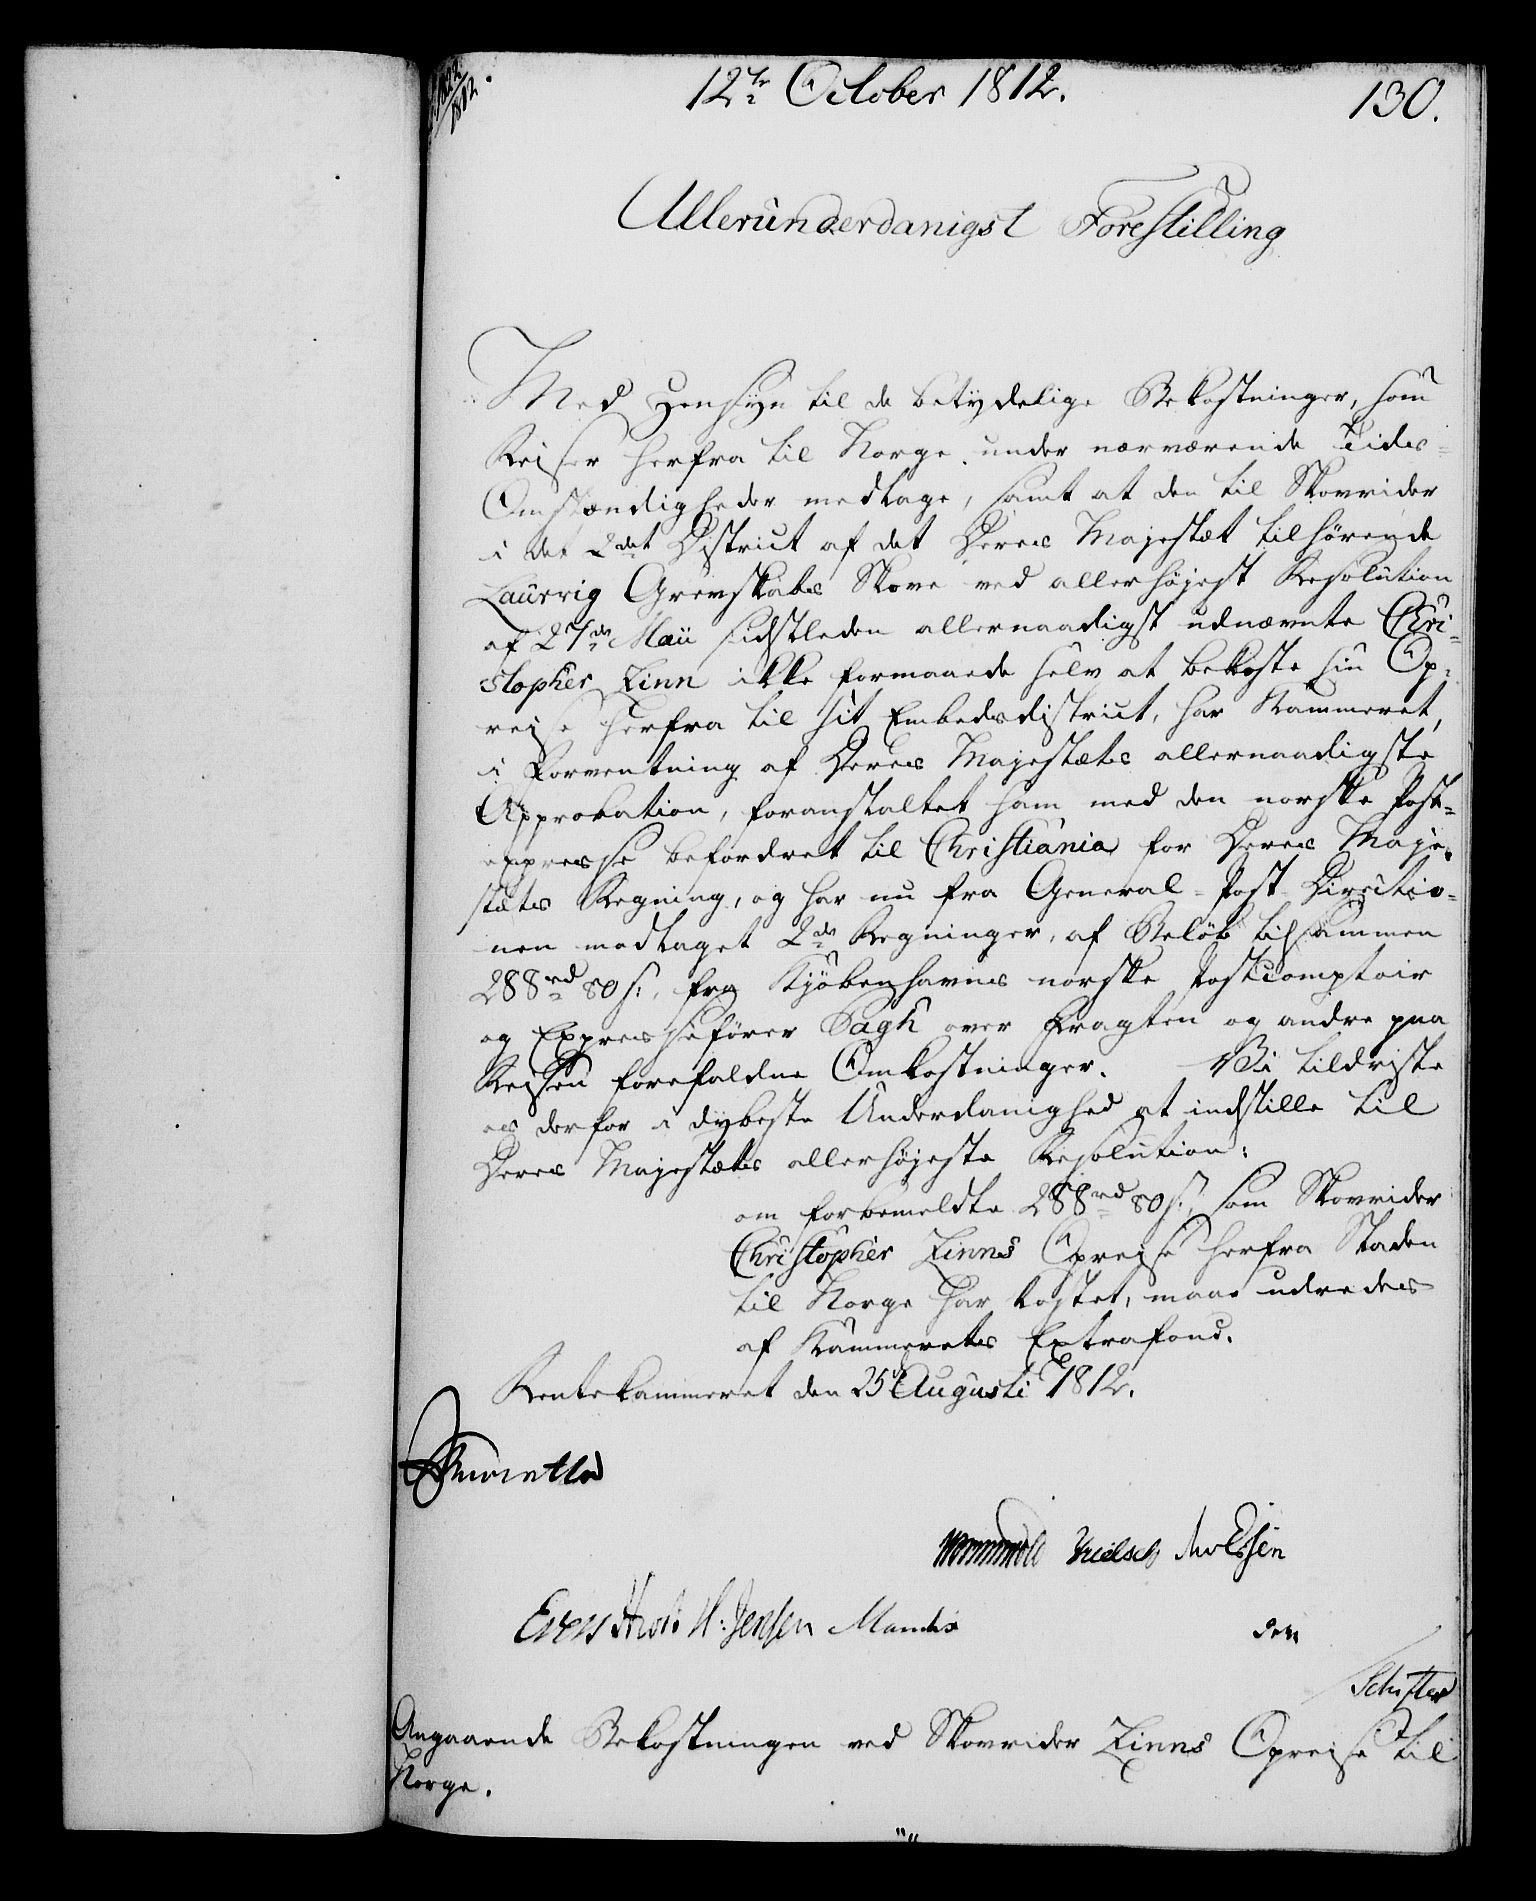 12te October 1812.
130.
1812.
Allerunderdanigst Forestilling
Med Hensyn til de betydelige Bekostninger, som
Reiser herfra til Norge under nærværende Tids-
Omstændigheder medtage, samt at den til Skovrider
i det 2det District af det Deres Majestæt tilhørende
Laurvig Grevskabs Skove ved allerhøjest Resolution
af 27de Maii sidstleden allernaadigst udnævnte Chri-
stopher Zinn ikke formaaede selv at bekoste sin Op-
reise herfra til sit Embedsdistrict, har Kammeret,
i Forventning af Deres Majestæts allernaadigste
Approbation, foranstaltet ham med den norske Post-
expresse befordret til Christiania for Deres Maje-
stæts Regning, og har nu fra General-Post-Directio-
nen modtaget 2de Regninger, af Beløb tilsammen
288rd 80 s:, fra Kjøbenhavns norske Postcomptoir
og Expressefører Bagh over Fragten og andre paa
Reisen forefaldne Omkostninger. Vi tildriste
os derfor i dybeste Underdanighed at indstille til
Deres Majestæts allerhøjeste Resolution:
om forbemeldte 288rd 80 s:, som Skovrider
Christopher Zinns Opreise herfra Staden
til Norge har kostet, maae udredes
af Kammerets Extrafond.
Rentekammeret den 25 Augusti 1812.
Knuth H: Jensen
Schifter
Angaaende Bekostningen ved Skovrider Zinns Opreise til
Norge.